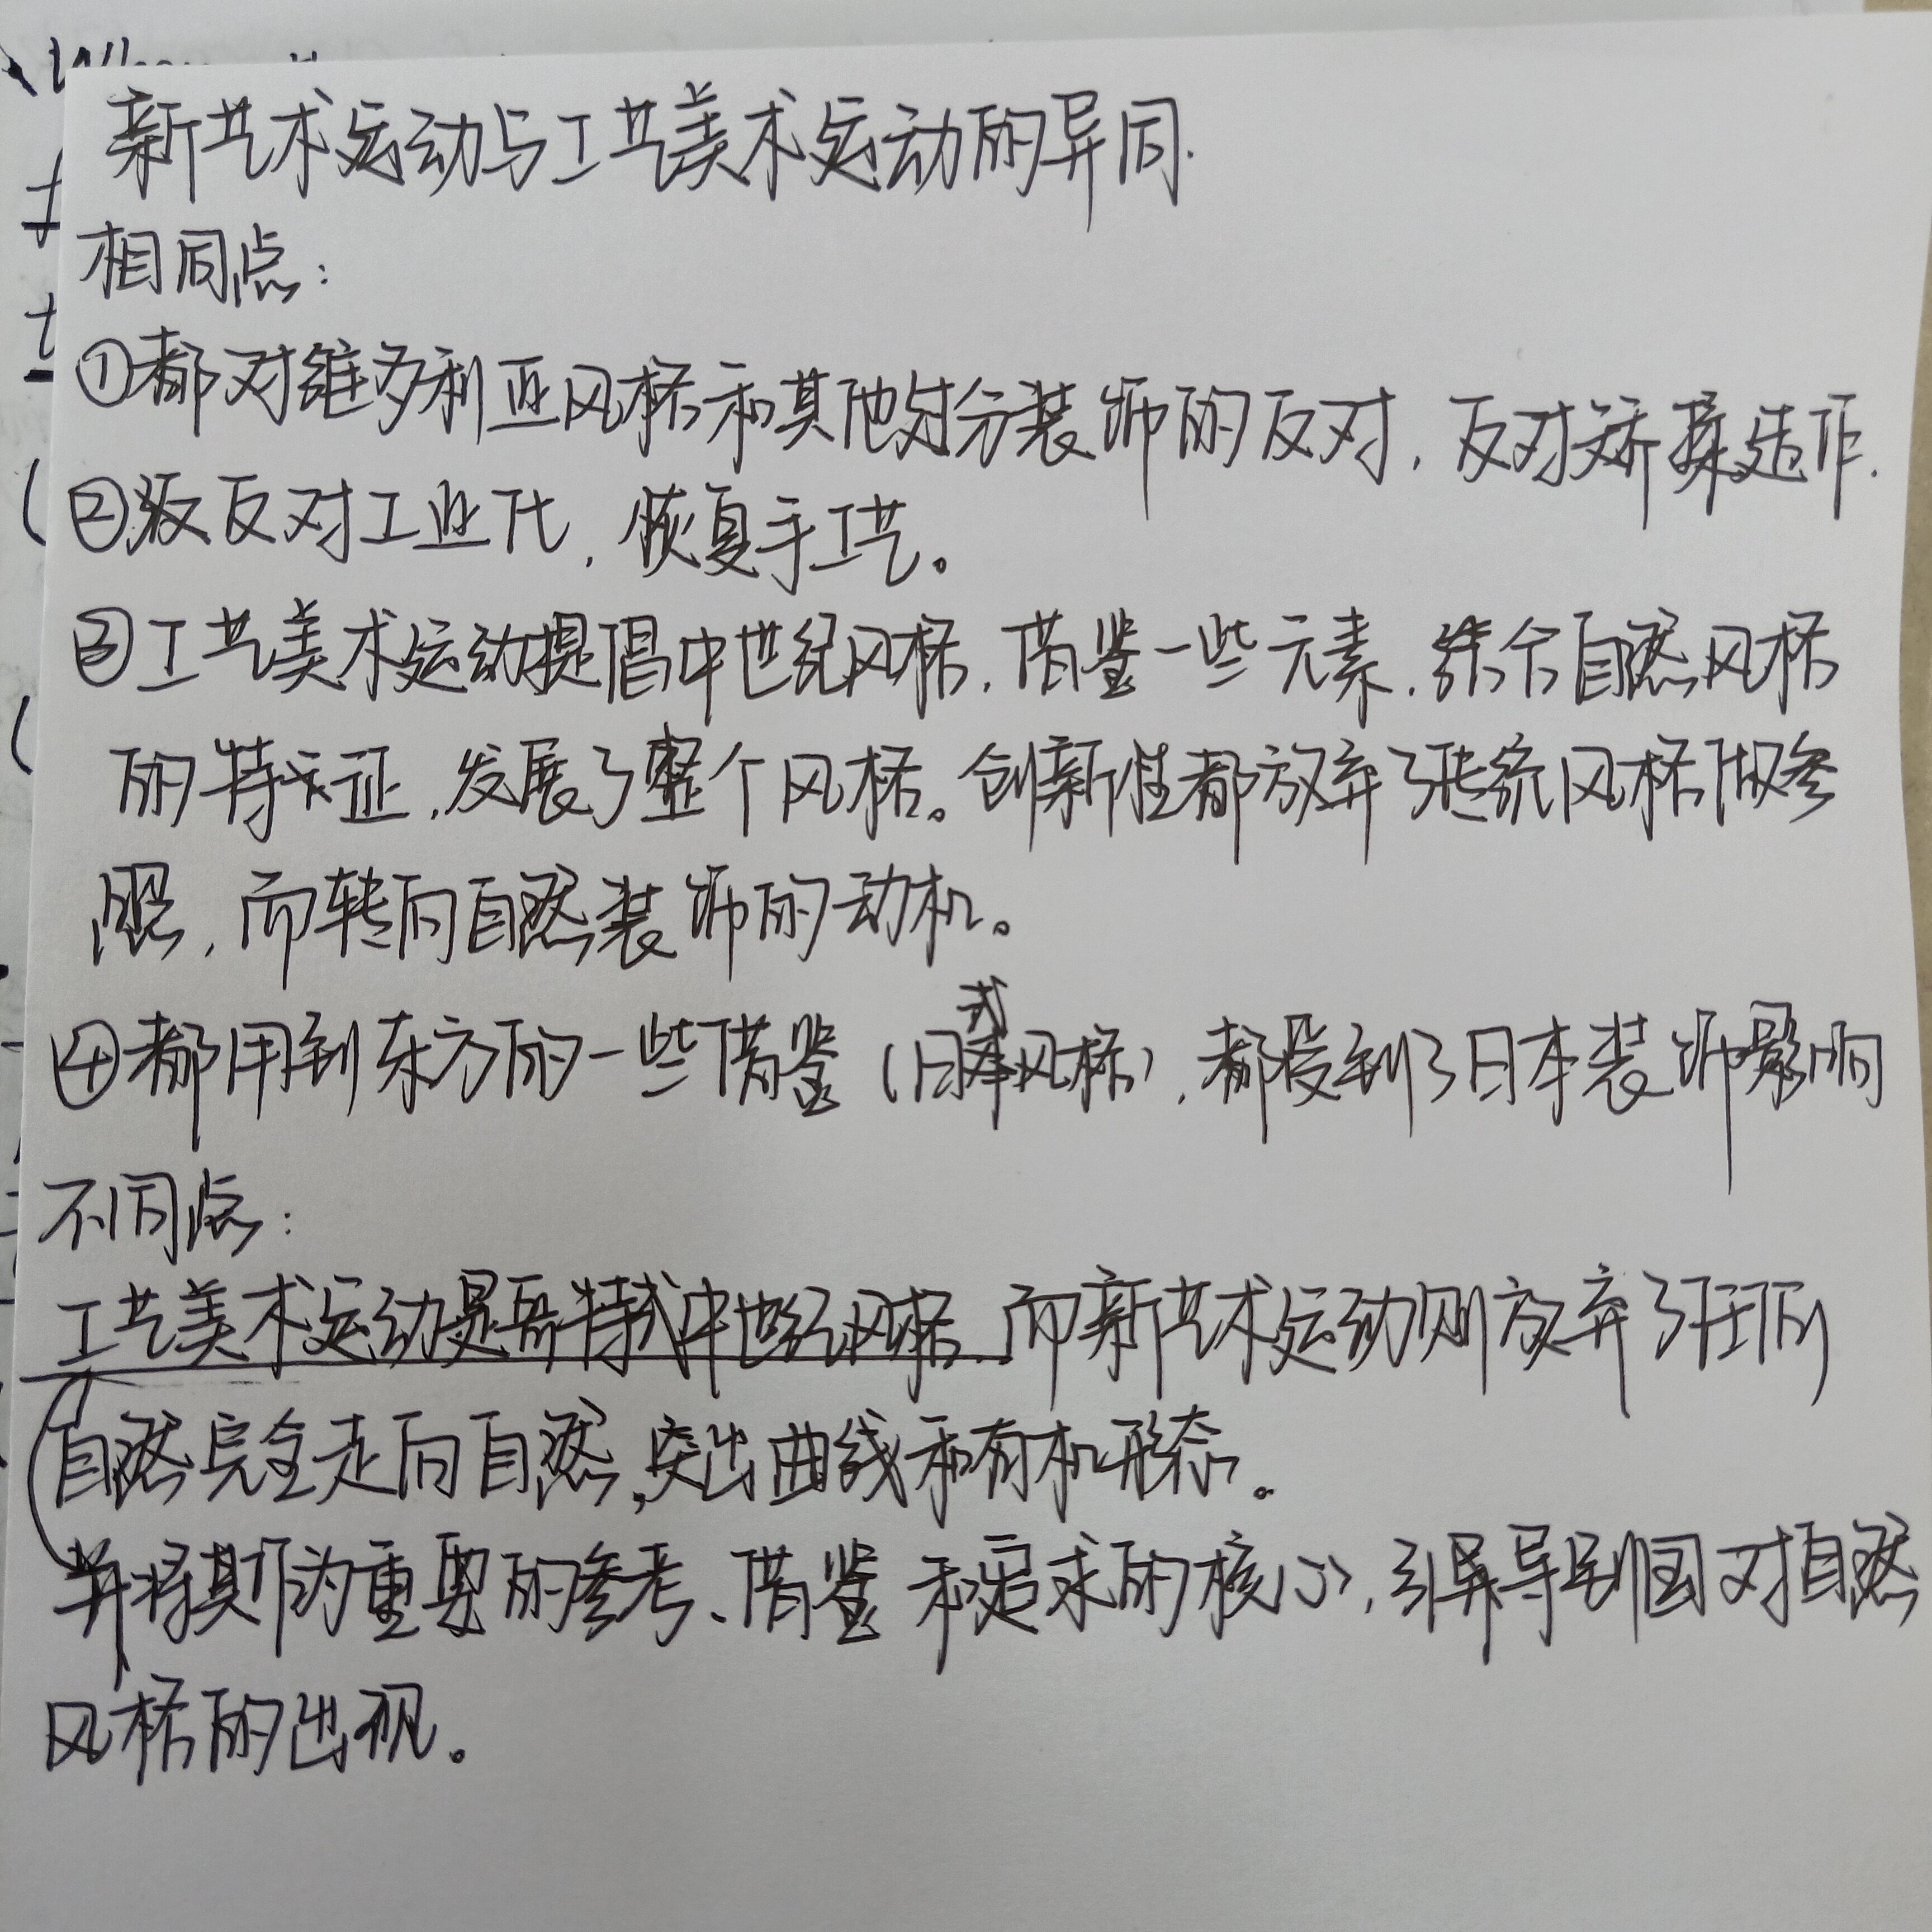 新艺术运动与工艺美术运动的异同.
相同点:
①都对维多利亚风格和其他过分装饰的反对,反对矫揉造作.
②反对工业化,恢复手工艺。
③工艺美术运动提倡中世纪风格,借鉴一些元素,综合自然风格
的特征,发展了整个风格。创新性都放弃了传统风格做参
照,而转向自然装饰的动机。
④都用到东方的一些借鉴(日式风格),都受到了日本装饰影响
不同点:
工艺美术运动是哥特式中世纪风格 而新艺术运动则放弃了任何
自然完全走向自然,突出曲线和有机形态。
并将其作为重要的参考、借鉴和追求的核心,引导到国对自然
风格的出现。